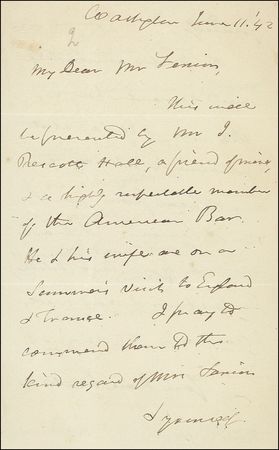 Washington June 11. '42
My Dear Mr
This will
be presented by Mr J.
Prescott Hall, a friend of mine,
& a highly respectable member
of the American Bar.
He & his wife are on a
Summer's visit to England
& France. I pray to
commend them to the
kind regard of Mrs
& yourself.